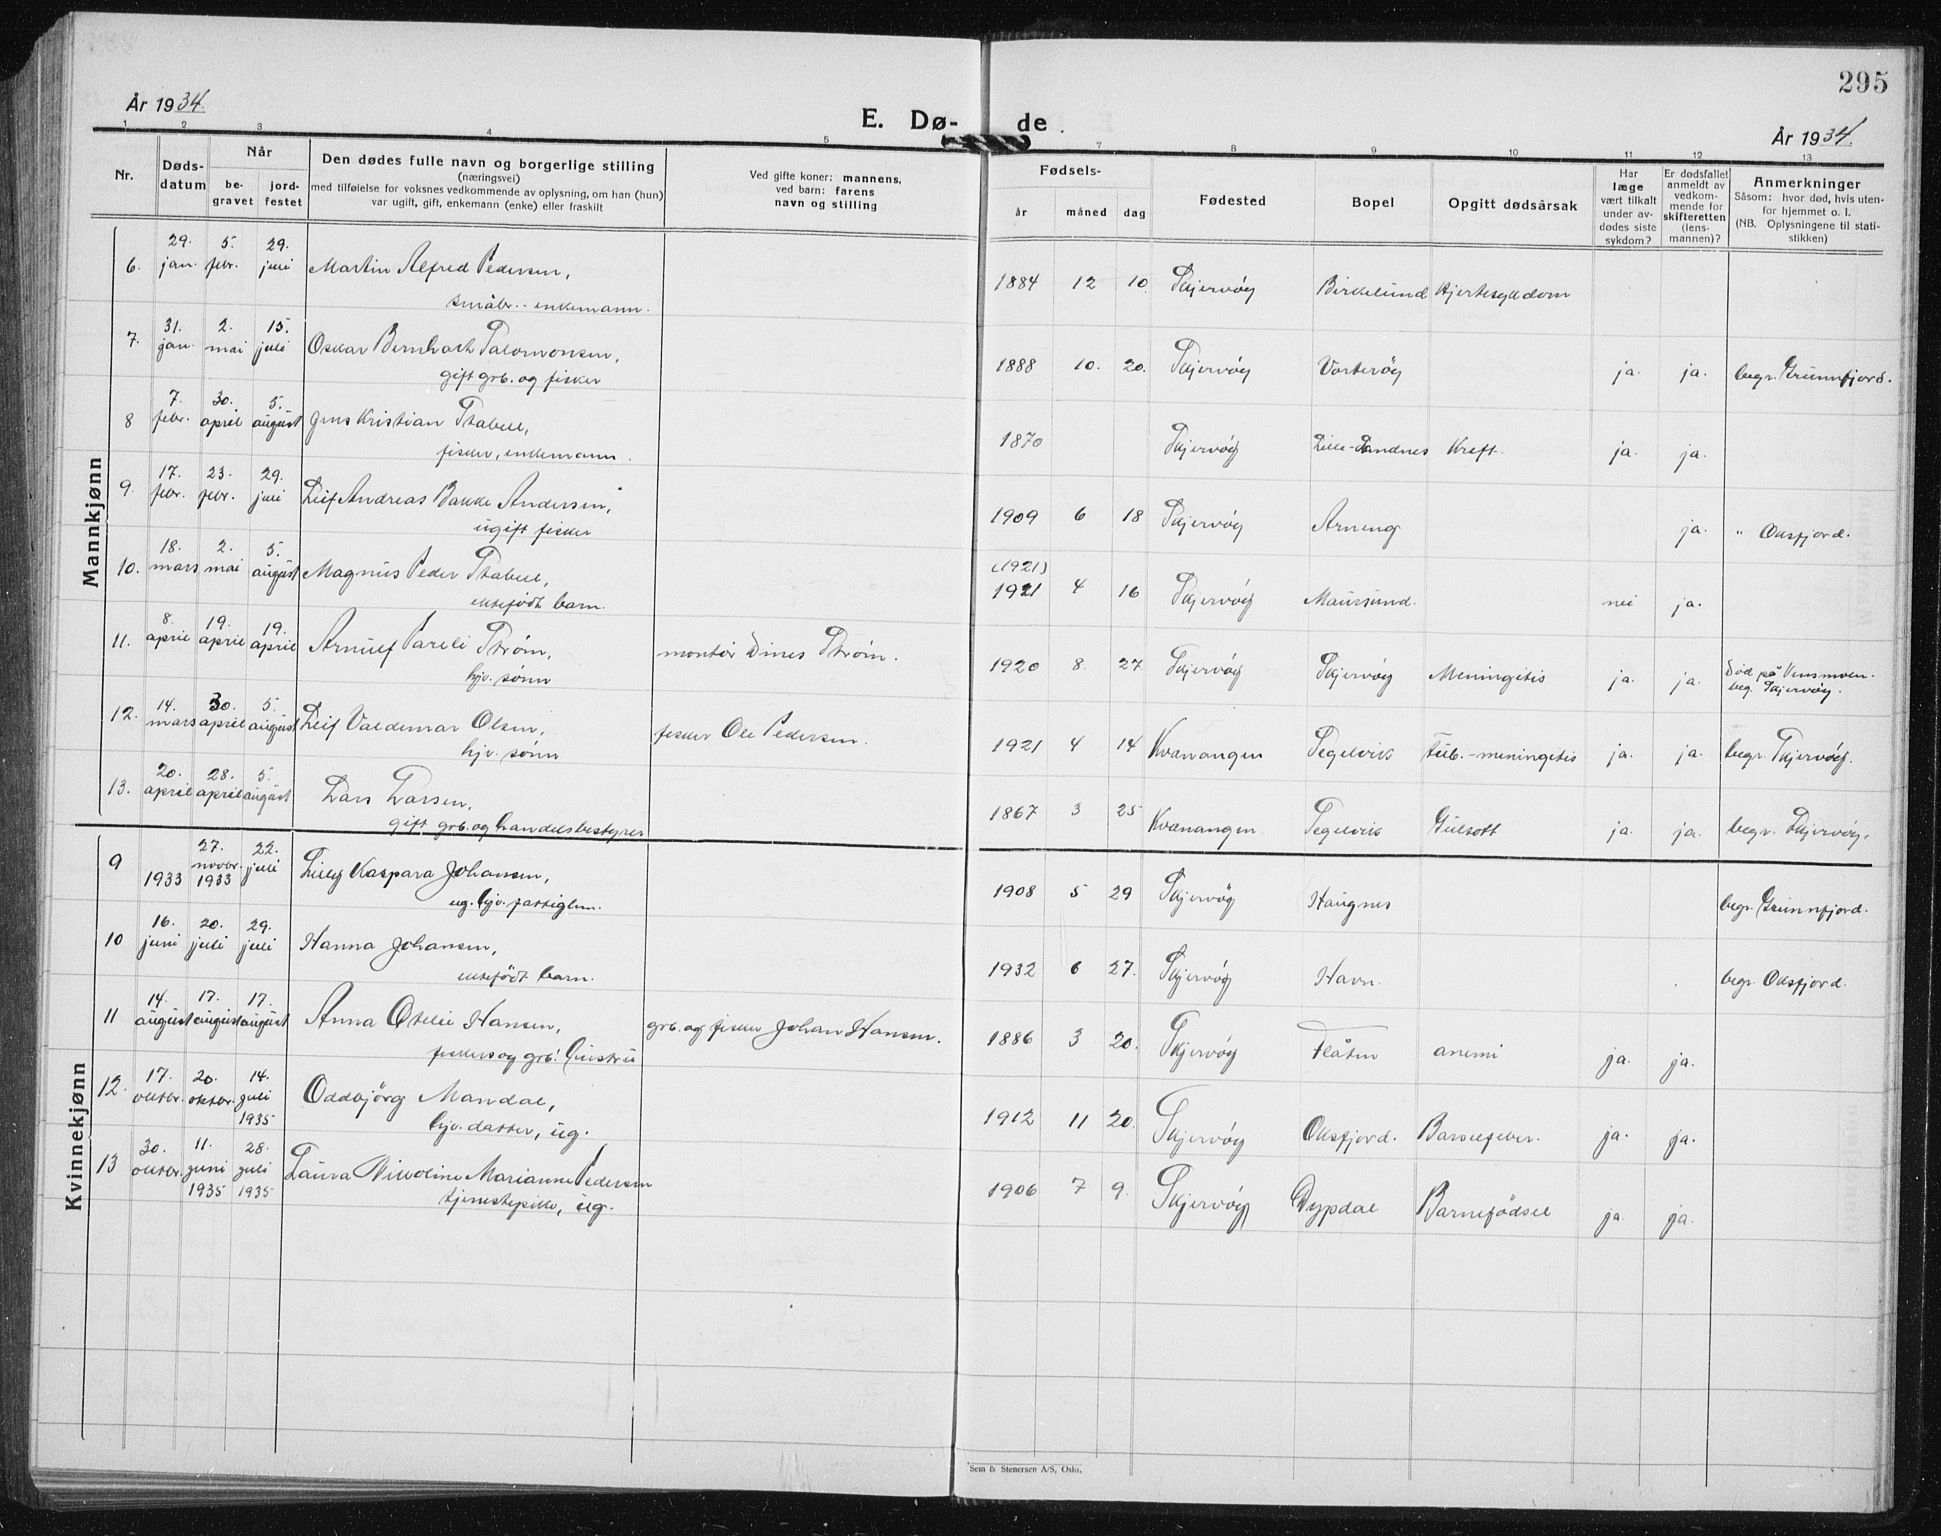 295
År 1934.
E. Dø-
de.
År 1934.
1 2 3 4 5 7 8 9 10 11 12 13
Nr.
Døds-
datum
Når
be-
gravet
jord-
festet
Den dødes fulle navn og borgerlige stilling
(næringsvei)
med tilføielse for voksnes vedkommende av oplysning, om han (hun)
var ugift, gift, enkemann (enke) eller fraskilt
Ved gifte koner: mannens,
ved barn: farens
navn og stilling
Fødsels-
år måned dag
Fødested
Bopel
Opgitt dødsårsak
Har
læge
vært tilkalt
under av-
dødes siste
sykdom?
Er dødsfallet
anmeldt av
vedkom-
mende for
skifteretten
(lens-
mannen)?
Anmerkninger
Såsom: hvor død, hvis uten-
for hjemmet o. l.
(NB. Oplysningene til stati-
stikken)
Mannkjønn
6. 29. jan. 5. febr. 29. juli Martin Alfred Pedersen,
småbr. - enkemann.
1884 12 10. Skjervøy Birkelund Hjertesykdom
7. 31. jan. 2. mai 15. juli Oskar Bernhart Salomonsen,
gift grb. og fisker
1888 10. 20. Skjervøy Vorterøy ja. ja. begr. Grunnfjord.
8 7. febr. 30. april 5. august Jens Kristian Stabell,
fisker, enkemann.
1870 Skjervøy Lille-Sandnes Kreft. ja. ja.
9. 17. febr. 23. febr. 29. juli Leif Andreas Bakke Andersen,
ugift fisker
1909 6 18 Skjervøy Arneng ja. " Oksfjord.
10. 18. mars 2. mai 5. august Magnus Peder Stabell,
ektefödt barn.
(1921)
1921 4 16 Skjervøy Maursund. nei ja.
11. 8. april 19. april 19. april Arnulf Pareli Strøm,
hjv. sønn
montør Dines Strøm.
1920 8. 27 Skjervøy Skjervøy Meningitis ja. ja. Død på Vensmoen.
beg. Skjervøy.
12. 14. mars 30. april 5. august Leif Valdemar Olsen,
hjv. sønn
fisker Ole Pedersen.
1921 4 14 Kvænangen Segelvik tub.-meningitis ja. ja. begr. Skjervøy.
13. 20. april 28. april 5. august Lars Larsen,
gift grb. og handelsbestyrer
1867 3 25 Kvænangen. Segelvik Gulsott ja. ja. begr. Skjervøy.
Kvinnekjønn
9 1933 27. novbr. 1933 22. juli Lilly Kaspara Johansen,
ug. hjv. fattiglem.
1908 5 29 Skjervøy Haugnes begr. Grunnfjord.
10 16. juni 20. juli 29. juli Hanna Johansen,
ektefödt barn.
1932 6 27. Skjervøy Havn. begr. Oksfjord.
11 14. august 17. august 17. august Anna Otelie Hansen,
fisker og grb. hustru
grb. og fisker Johan Hansen.
1886 3 20. Skjervøy Flåten anemi ja. ja.
12. 17. oktbr. 20. oktbr. 14. juli 1935 Oddbjörg Mandal,
hjv. datter, ug.
1912 11 20. Skjervøy Oksfjord. Barselfeber. ja. ja.
13 30. oktbr. 11. juni 1935 28. juli 1935 Laura Nikoline Marianne Pedersen
tjenestepike, ug.
1906 7 9. Skjervøy Dypdal Barnefödsel ja. ja.
Sem & Stenersen A/S, Oslo.